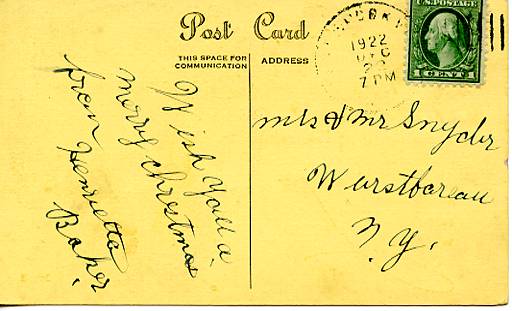 Post Card
THIS SPACE FOR
COMMUNICATION
ADDRESS
1922
DEC
7 PM
U.S. POSTAGE
1 CENT 1
Wish You a
merry christmas
from Henrietta
Baker.
Mrs & Mr Snyder
Wurstboreau
N.Y.